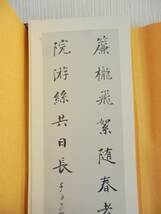 簾櫳飛絮随春老
院游絲共日長